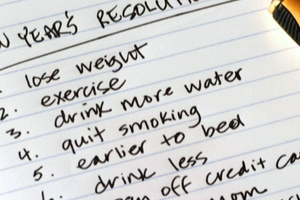 YEAR'S RESOLUTI
lose weight
2. exercise
3. drink more water
4. quit smoking
5. earlier to bed
6. drink less
off credit ca
Mom